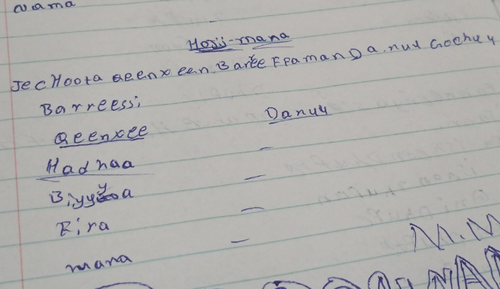 Nama
Hojii-mana
Jechoota Qeenxeen Barreeffaman Danuu Gochuu
Barreessi
Qeenxee Danuu
Hadhaa —
Biyyoa —
Eira —
mana —
M.N